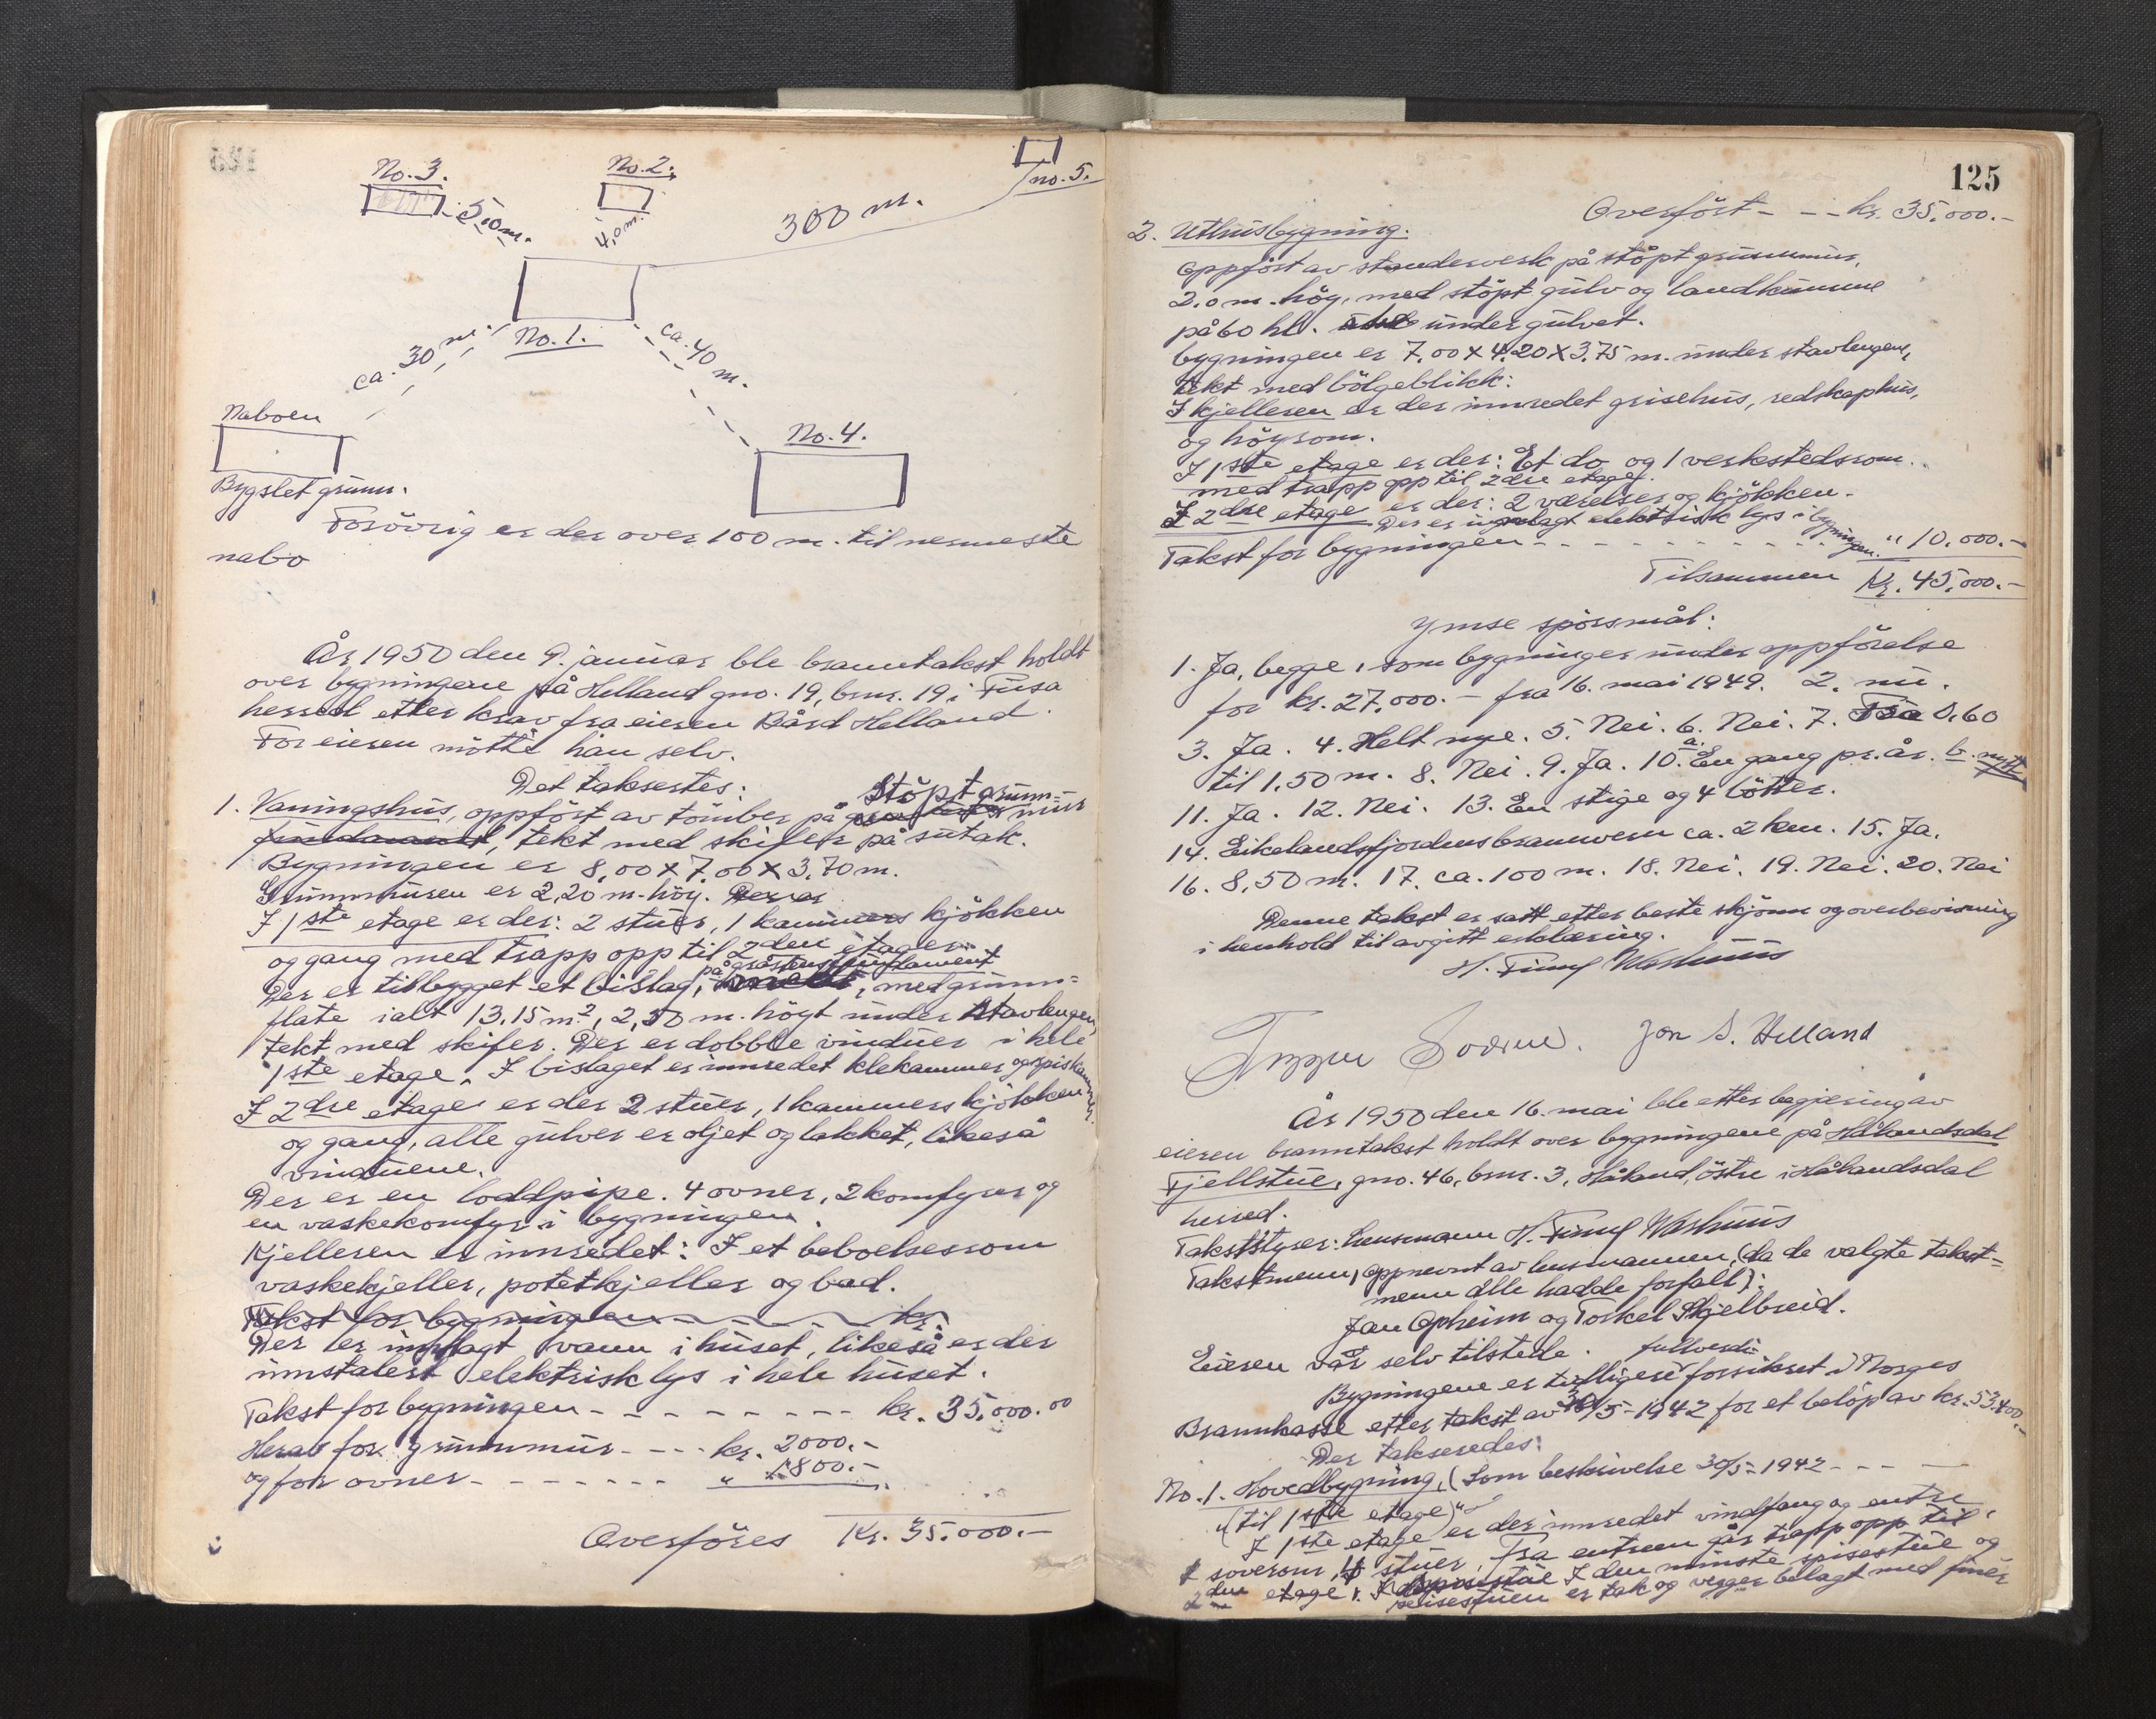 No. 3.
No. 2.
no. 5.
5,0 m.
4,0 m.
300 m.
No. 1.
ca. 30 m.
ca. 40 m.
Naboen
No. 4.
Bygslet grunn.
Forövrig er der over 100 m. til nermeste
nabo
År 1950 den 9. januar ble branntakst holdt
over bygningene på Helland gno. 19, brnr. 19 i Fusa
herred etter krav fra eieren Bård Helland.
For eieren mötte han selv.
Det taksertes:
1. Vaningshus, oppfört av tömber på Stöpt grunn-
mur
fundament, tekt med skifer på sutak.
Bygningen er 8,00 X 7,00 X 3,70 m.
Grunnmuren er 2,20 m. höy. Der er
I 1ste etage er der: 2 stuer, 1 kammers kjökken
og gang med trapp opp til 2den etage.
Der er tilbygget et bislag, på gråstensfundament, med grunn-
flate ialt 13,15 m², 2,50 m. höyt under stavlengen,
tekt med skifer. Der er dobble vinduer i hele
1ste etage. I bislaget er innredet klekammer og spiskammer.
I 2dre etage er der 2 stuer, 1 kammers kjökken
og gang, alle gulver er oljet og lakket, likeså
vinduene.
Der er en loddpipe. 4 ovner, 2 komfyrer og
en vaskekomfyr i bygningen.
Kjelleren er innredet: I et beboelsesrom
vaskekjeller, potetkjeller og bad.
Takst for bygningen - - - - kr.
Der er innlagt vann i huset, likeså er der
innstalert elektrisk lys i hele huset.
Takst for bygningen - - - - - - - - - kr. 35.000.00
Herav for grunnmur - - - - kr. 2000.-
og for ovner - - - - - - - " 1800.-
Overföres Kr. 35.000.-
125
Overfört - - - kr. 35.000.-
2. Uthusbygning.
Oppfört av standerverk på stöpt grunnmur,
2.0 m. höy, med stöpt gulv og landkumme
på 60 hl. under gulvet.
bygningen er 7,00 X 4.20 X 3.75 m. under stavlengen,
tekt med bölgeblikk:
I kjelleren er der innredet grisehus, redskaphus,
og höyrom.
I 1ste etage er der: Et do og 1 verkstedsrom
med trapp opp til 2dre etage.
I 2dre etage er der: 2 værelser og kjökken.
Der er innlagt elektrisk lys i bygningen.
Takst for bygningen - - - - - - - - - " 10.000.-
Tilsammen Kr. 45.000.-
Ymse spörsmål:
1. Ja, begge, som bygninger under oppförelse
for kr. 27.000.- fra 16. mai 1949. 2. nu.
3. Ja. 4. Helt nye. 5. Nei. 6. Nei. 7. Fra 0,60
til 1,50 m. 8. Nei. 9. Ja. 10. a. En gang pr. år. b. nytt
11. Ja. 12. Nei. 13. En stige og 4 bötter.
14. Eikelandsfjordens brannvern ca. 2 km. 15. Ja.
16. 8,50 m. 17. ca. 100 m. 18. Nei. 19. Nei. 20. Nei
Denne takst er satt etter beste skjönn og overbevisning
i henhold til avgitt erklæring.
Jon S. Helland
År 1950 den 16. mai ble etter begjæring av
eieren branntakst holdt over bygningene på Hålandsdal
Fjellstue, gno. 46, brnr. 3, Håland, östre i Hålandsdal
herred.
Takststyrer: Lensmann H.
Takstmenn, oppnevnt av lensmannen, (da de valgte takst-
menn alle hadde forfall):
Jan Opheim og Torkel Skjelbreid.
Eieren var selv tilstede.
Bygningene er tidligere fullverdi forsikret i Norges
Brannkasse etter takst av 30/5-1942 for et belöp av kr. 53.400.-
Der takseredes:
No. 1. Hovedbygning, (Som beskrivelse 30/5-1942 - - -
"(til 1ste etage)"
I 1ste etage er der innredet vindfang og entre
soverom, stuer. Fra entreen går trapp opp til
2den etage. I den minste spisestue og
peisestuen er tak og vegger belagt med finer